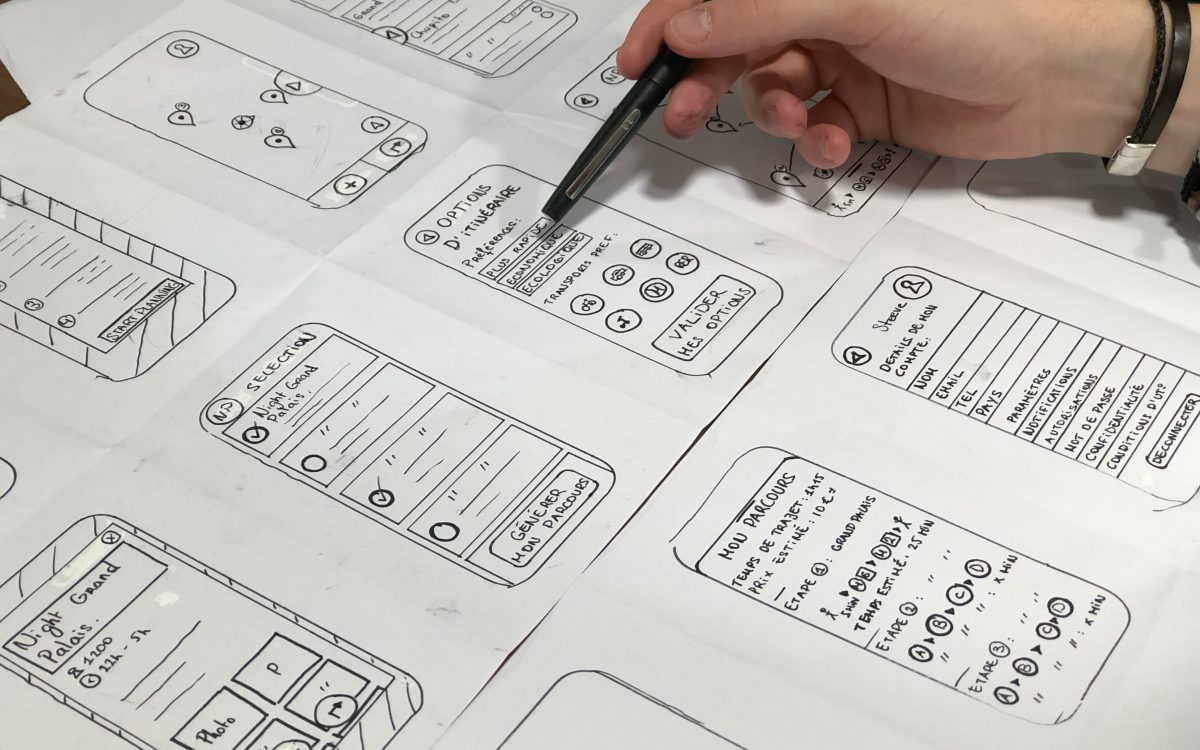 Grand
Chupito
" "
3
4
START PLANNING
OPTIONS
D'ITINÉRAIRE
Préférences:
PLUS RAPIDE
ÉCONOMIQUE
ÉCOLOGIQUE
TRANSPORTS PREF:
M
RER
VALIDER
MES OPTIONS
NP SELECTION
Night Grand
Palais.
"
"
"
GÉNÉRER
MON PARCOURS
Steeve
DETAILS DE MON
COMPTE:
NOM
EMAIL
TEL
PAYS
PARAMETRES
NOTIFICATIONS
AUTORISATIONS
MOT DE PASSE
CONFIDENTIALITÉ
CONDITIONS D'UT°
DECONNECTER
MON PARCOURS
TEMPS DE TRAJET: 1h15
PRIX ESTIMÉ: 10€
ETAPE 1: GRAND PALAIS
5MIN
TEMPS ESTIMÉ: 25 MIN
ETAPE 2: " "
A B C D
" " : X MIN
ETAPE 3: " "
A B C D
" " : X MIN
X
Night Grand
Palais.
1200
22h - 5h
P
Photo
"